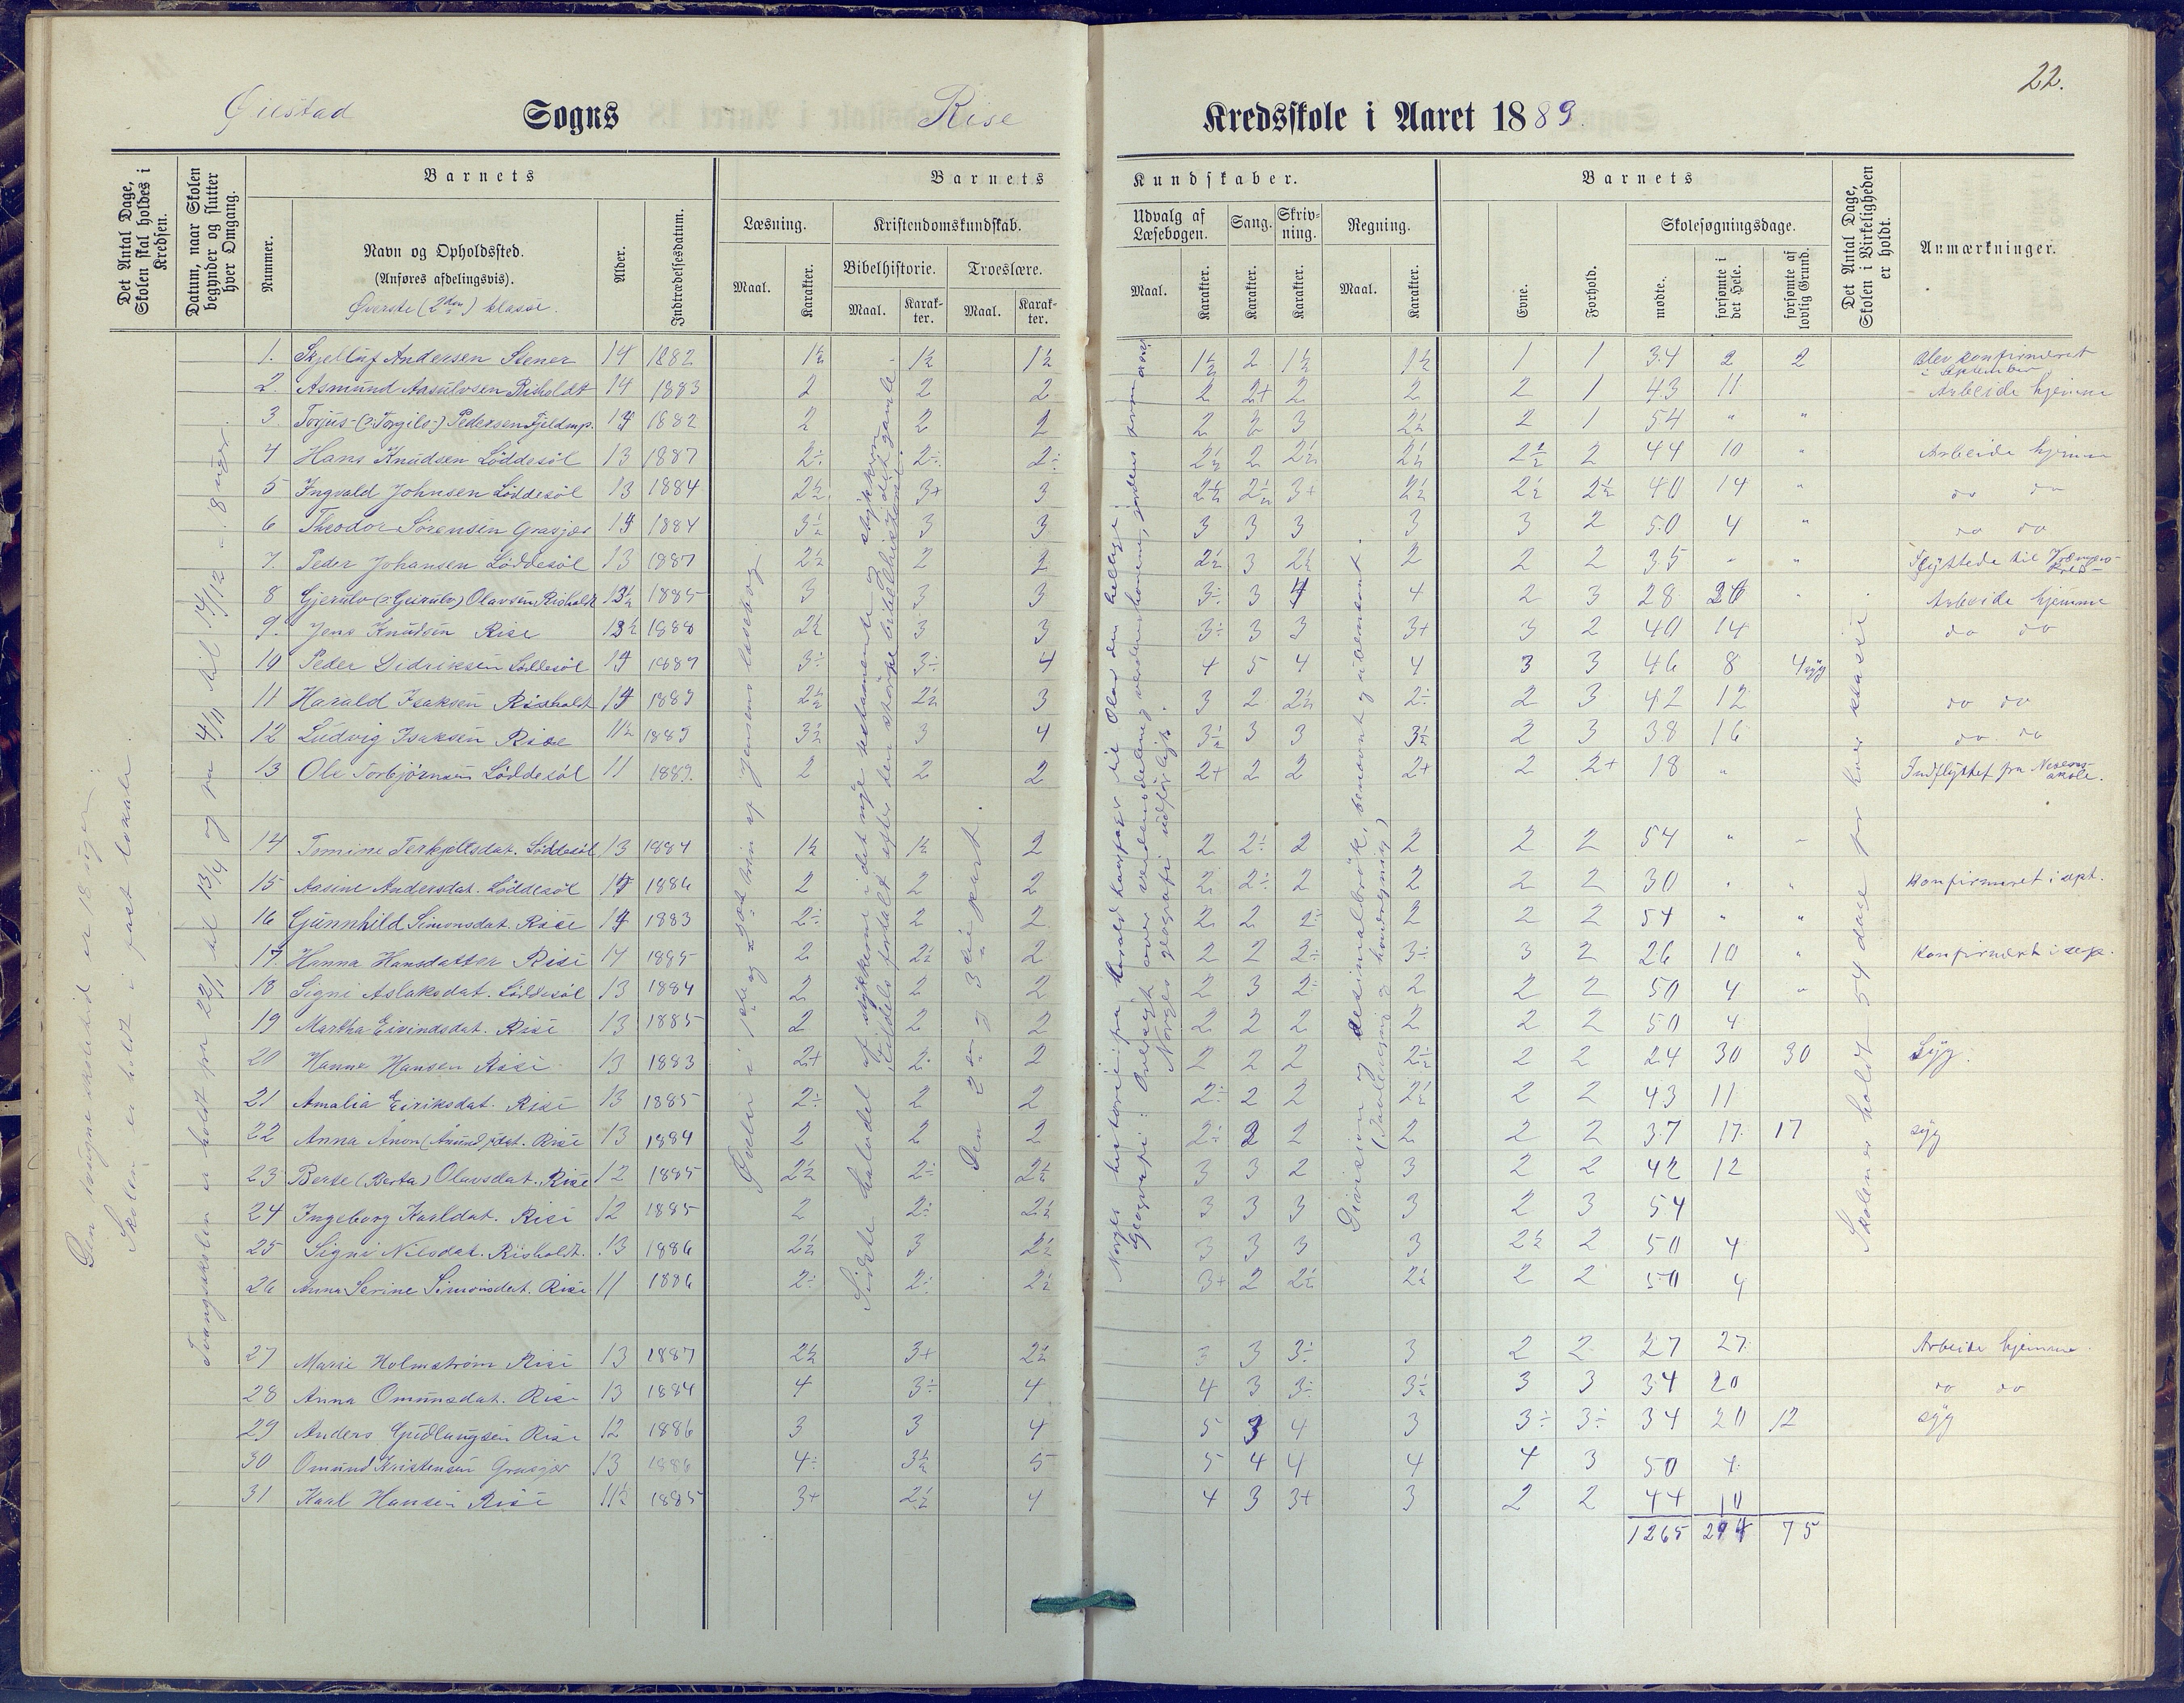 22.
Øiestad Sogns Rise Kredsskole i Aaret 1889.
Det Antal Dage, Skolen skal holdes i Kredsen.
Datum, naar Skolen begynder og slutter hver Omgang.
Barnets
Nummer.
Navn og Opholdssted.
(Anføres afdelingsvis).
Øverste (2den) klasse.
Alder.
Indtrædelsesdatum.
Barnets Kundskaber.
Læsning.
Maal. Karakter.
Kristendomskundskab.
Bibelhistorie. Troeslære.
Maal. Karakter. Maal. Karakter.
Udvalg af Læsebogen.
Maal. Karakter.
Sang. Karakter.
Skrivning. Karakter.
Regning.
Maal. Karakter.
Barnets
Evne. Forhold.
Skolesøgningsdage.
mødte. forsømte i det Hele. forsømte af lovlig Grund.
Det Antal Dage, Skolen i Virkeligheden er holdt.
Anmærkninger.
Den tvungne skoletid er 18 uger.
Skolen er holdt i fast lokale.
Tvangsskolen er holdt fra 22/1 til 13/4 og fra 4/11 til 14/12 = 18 uger.
Sidste halvdel af stykkerne i det nye testamente og stykkerne
Den 2den og 3die part.
Norges historie: fra Harald Haarfager til Olav den hellige.
Geografi: Oversigt over verdensdelene og verdenshavene, jordens
Norges geografi udførligt.
Division og desimalbrøk, benævnt og ubenævnt.
(Tavleregning og hovedregning)
Skolen er holdt 54 dage for hver klasse.
1. Skjelluf Andersen Stener 14 1882 1½ 1½ 1½ 1½ 2 1½ 1½ 1 1 34 2 2 Blev konfirmeret i september
2. Asmund Aasulvsen Risholdt 14 1883 2 2 2 2 2+ 2 2 2 1 43 11 Arbeide hjemme
3. Torjus (: Torgils :) Pedersen Fjeldmp. 14 1882 2 2 2 2 3 3 2½ 2 1 54 " "
4 Hans Knudsen Løddesøl 13 1887 2÷ 2÷ 2÷ 2½ 2 2½ 2½ 2½ 2 44 10 " Arbeide hjemme
5 Ingvald Johnsen Løddesøl 13 1884 2½ 3+ 3 2½ 2½ 3+ 2½ 2½ 2½ 40 14 " do do
6 Theodor Sørensen Grasjer 14 1884 3½ 3 3 3 3 3 3 3 2 50 4 " do do
7. Peder Johansen Løddesøl 13 1887 2½ 2 2 2½ 3 2½ 2 2 2 35 " " Flyttede til
8 Gjerulv (: Geirulv) Olavsen Risholdt 13½ 1885 3 3 3 3÷ 3 4 4 2 3 28 26 " Arbeide hjemme
9. Jens Knudsen Rise 13½ 1888 2½ 3 3 3÷ 3 3 3+ 3 2 40 14 do do
10 Peder Didriksen Løddesøl 14 1889 3÷ 3÷ 4 4 5 4 4 3 3 46 8 4 syg
11 Harald Isaksen Risholdt 14 1889 2½ 2½ 3 3 2 2½ 2÷ 2 3 42 12 do do
12 Ludvig Isaksen Rise 11½ 1889 3½ 3 4 3½ 3 3 3½ 2 3 38 16 do do
13 Ole Torbjørnsen Løddesøl 11 1889. 2 2 2 2+ 2 2 2+ 2 2+ 18 " Indflyttet fra skole.
14 Tomine Terkjeltsdat. Løddesøl 13 1884 1½ 1½ 2 2 2÷ 2 2 2 2 54 " -
15 Aasine Andersdat. Løddesøl 14 1886 2 2 2 2 2÷ 2 2 2 2 30 " " Konfirmeret i sept.
16 Gunnhild Simonsdat. Rise 14 1883 2÷ 2 2 2 2 2÷ 2 2 2 54 " "
17. Hanna Hansdatter Rise 14 1885 2 2½ 2 2 2 2÷ 3÷ 3 2 26 10 " Konfirmert i sept.
18 Signe Aslaksdat. Løddesøl 13 1884 2 2 2 2 3 2÷ 2 2 2 50 4 "
19 Martha Eivindsdat. Rise 13 1885 2 2 2 2 2 2 2 2 2 50 4
20 Hanna Hansen Rise 13 1883 2+ 2÷ 2 2 2 2 2½ 2 2 24 30 30 Syg.
21 Amalia Eiriksdat. Rise 13 1885 2÷ 2 2 2÷ 2 2 2½ 2 2 43 11
22 Anna Anon (Anund) dat. Rise 13 1884 2 2 2 2÷ 2 2 2 2 2 37 17 17 syg
23 Berte (Berta) Olavsdat. Rise 12 1885 2½ 2÷ 2½ 3 3 2 3 2 2 42 12
24 Ingeborg Karldat. Rise 12 1885 2 2÷ 2½ 3 3 3 3 2 3 54
25 Signe Nilsdat. Risholdt. 13 1886 2½ 3 2½ 3 3 3 3 2½ 2 50 4
26 Anna Serine Simonsdat. Rise 11 1886 2÷ 2÷ 2½ 3+ 2 2½ 2½ 2 2 50 4
27 Marie Holmstrøm Rise 13 1887 2½ 3+ 2½ 3 3 3÷ 3 2 2 27 27 Arbeide hjemme.
28 Anna Omunsdat. Rise 13 1884 4 3÷ 4 4 3 3÷ 3½ 3 3 34 20 do do
29 Anders Gudlaugsen Rise 12 1886 3 3 4 5 3 4 3 3÷ 3÷ 34 20 12 syg
30 Omund Kristensen Grasjer 13 1886 4÷ 3½ 5 5 4 4 4 4 3 50 4
31 Karl Hansen Rise 11½ 1885 3+ 2½ 4 4 3 3+ 3 2 2 44 10
1265 294 75